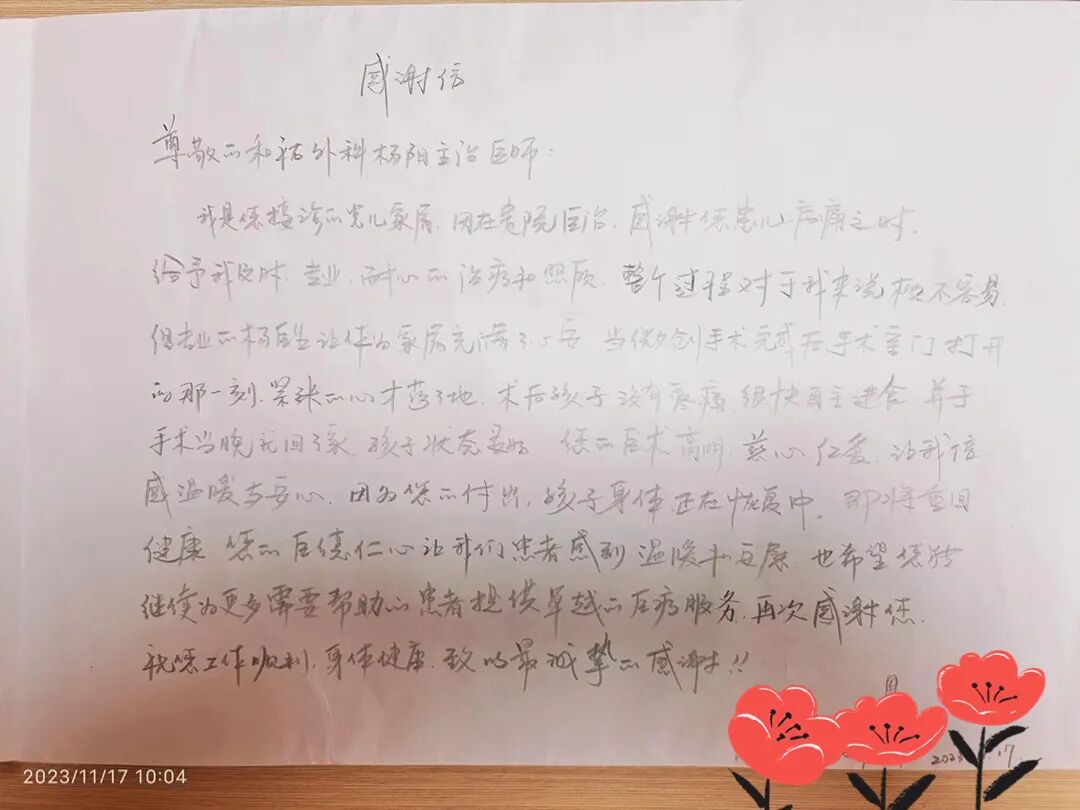 感谢信
尊敬的和祐外科杨阳主治医师:
我是您接诊的患儿家属,因在贵院医治,感谢您患儿病痛之时,
给予我及时、专业、耐心的治疗和照顾,整个过程对于我来说极不容易,
但专业的杨医生让作为家属充满了心安,当微创手术完成后手术室门打开
的那一刻,紧张的心才落了地,术后孩子没有疼痛,很快自主进食,并于
手术当晚就回了家,孩子状态良好,您的医术高明,慈心仁爱,让我倍
感温暖与安心,因为您的付出,孩子身体正在恢复中,即将重回
健康,您的医德仁心让我们患者感到温暖和安康,也希望您能
继续为更多需要帮助的患者提供卓越的医疗服务,再次感谢您,
祝您工作顺利,身体健康,致以最诚挚的感谢!!
2023/11/17 10:04